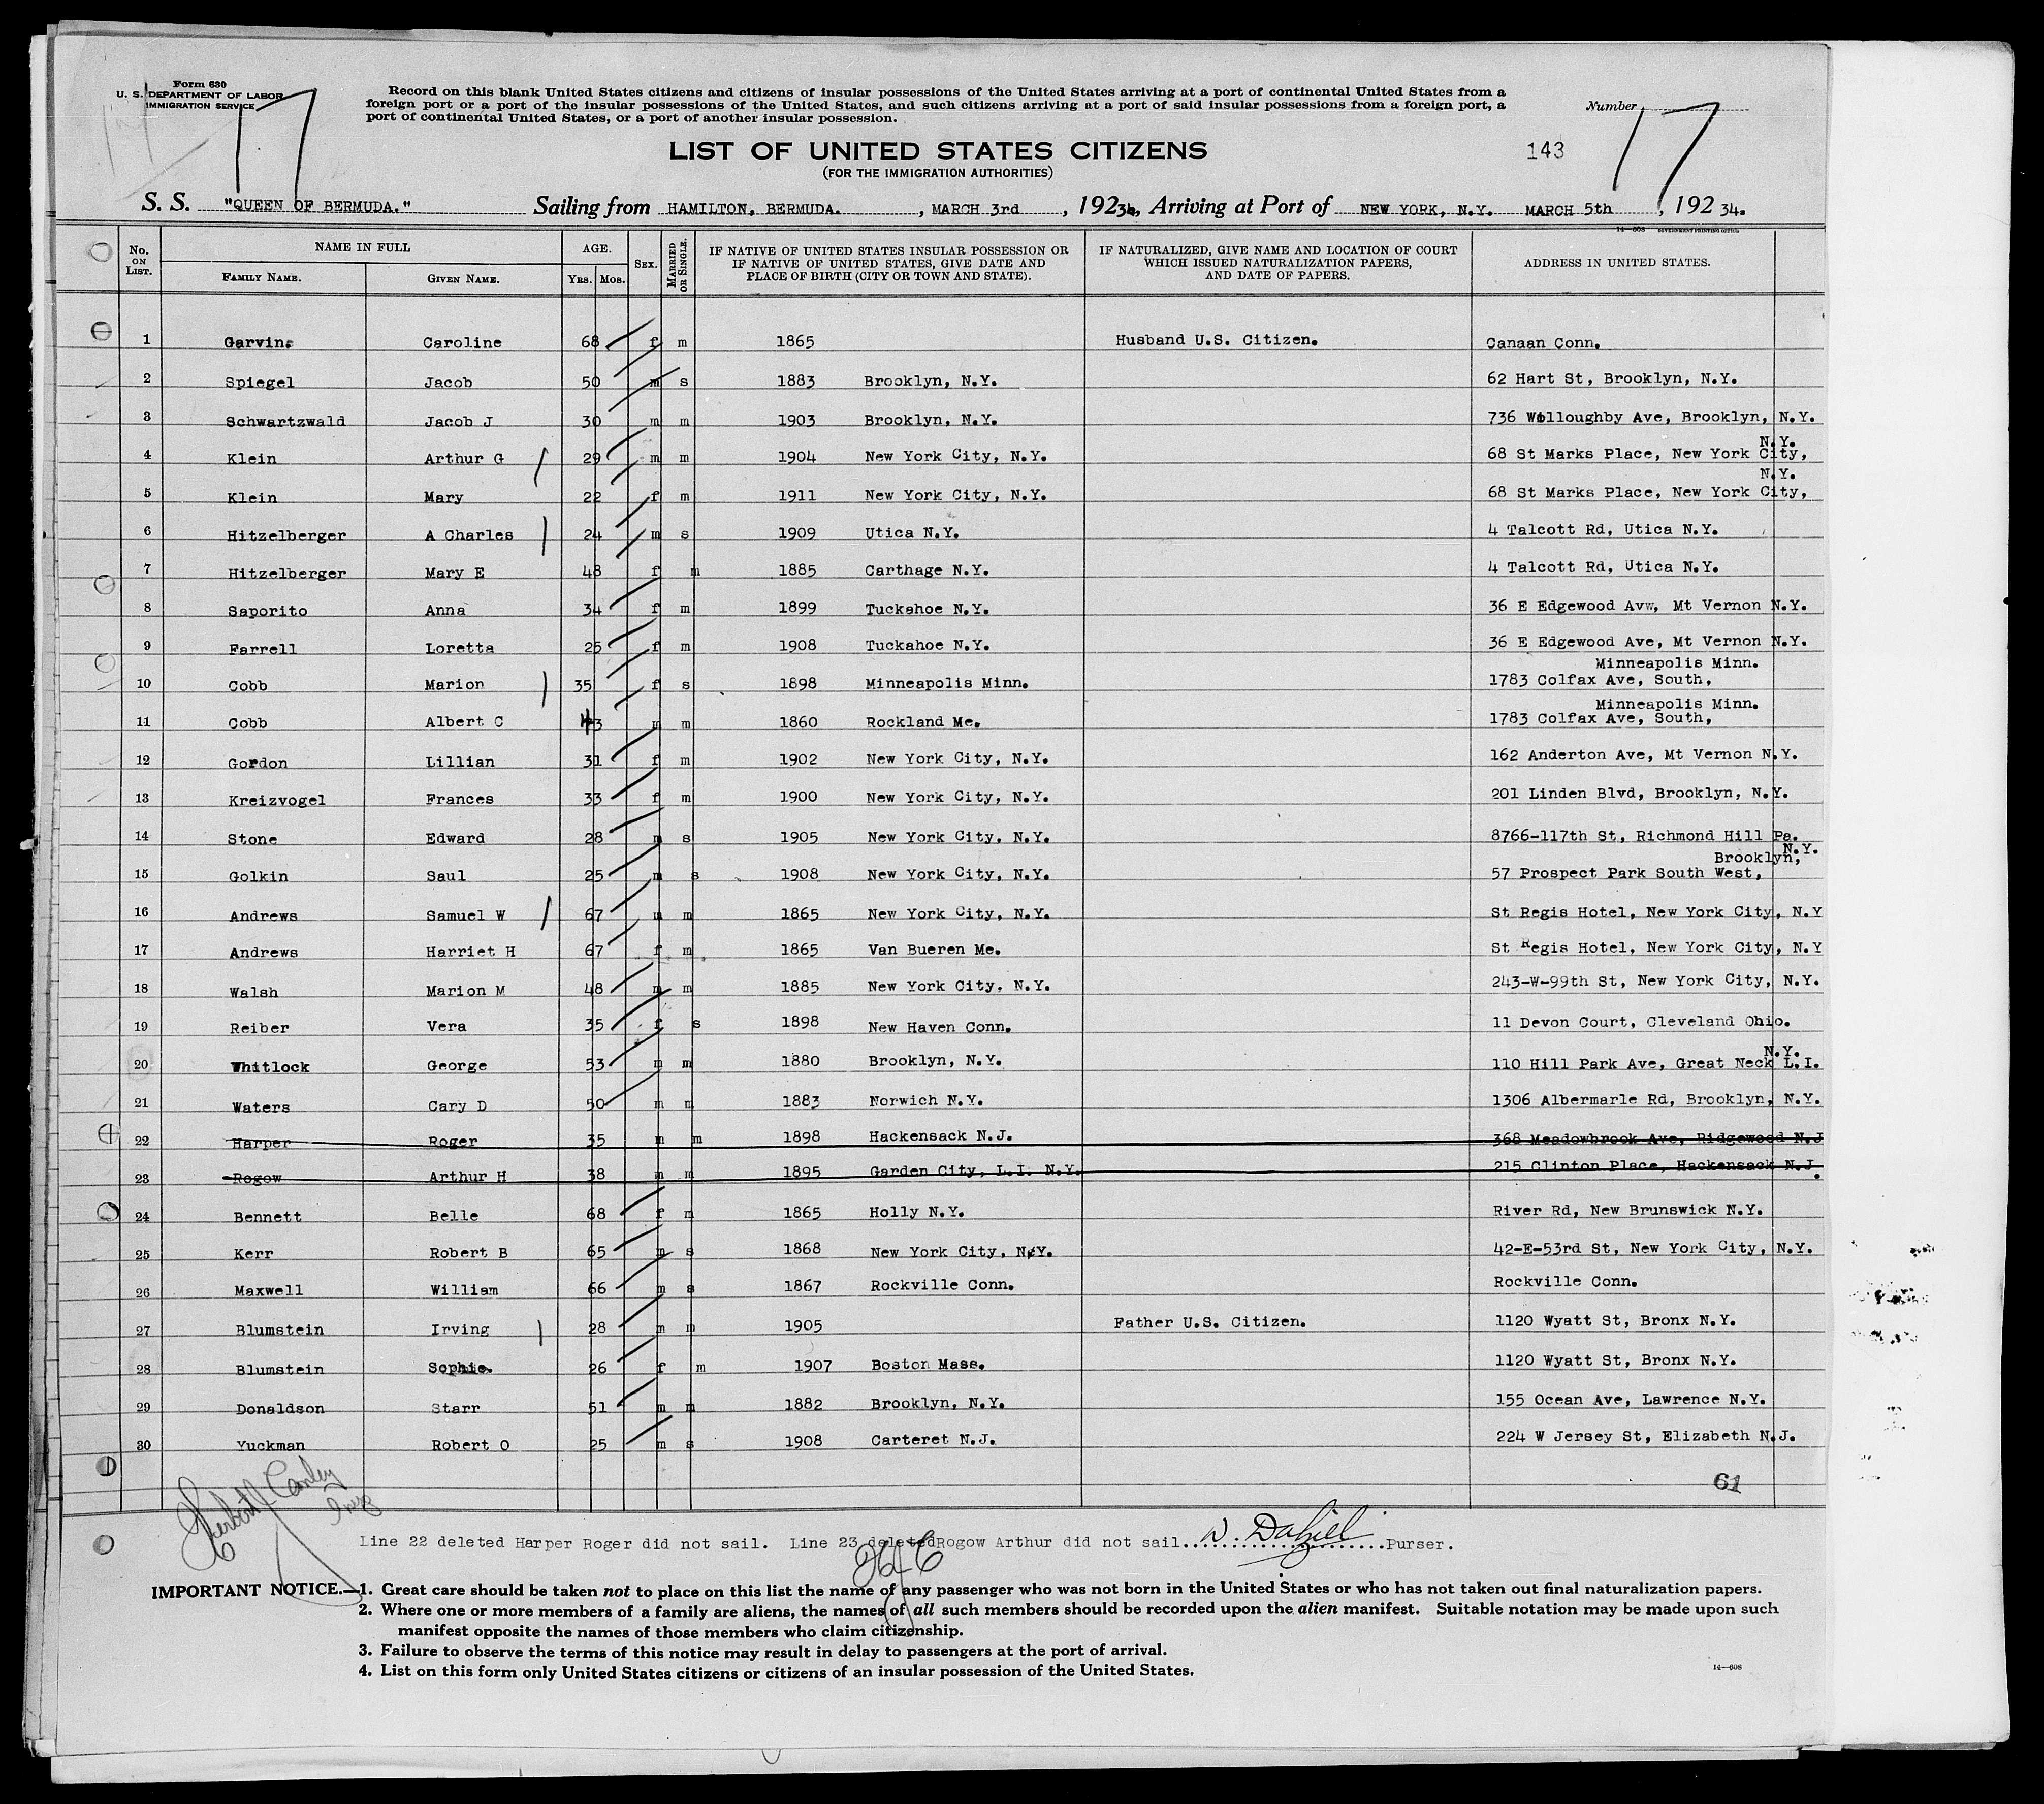 Form 630
U. S. DEPARTMENT OF LABOR
IMMIGRATION SERVICE
17
Record on this blank United States citizens and citizens of insular possessions of the United States arriving at a port of continental United States from a
foreign port or a port of the insular possessions of the United States, and such citizens arriving at a port of said insular possessions from a foreign port, a
port of continental United States, or a port of another insular possession.
Number 17
LIST OF UNITED STATES CITIZENS
143
(FOR THE IMMIGRATION AUTHORITIES)
S. S. "QUEEN OF BERMUDA." Sailing from HAMILTON, BERMUDA. , MARCH 3rd , 1934, Arriving at Port of NEW YORK, N.Y. MARCH 5th , 192 34.
14—608 GOVERNMENT PRINTING OFFICE
No. ON LIST. NAME IN FULL AGE. SEX. MARRIED OR SINGLE. IF NATIVE OF UNITED STATES INSULAR POSSESSION OR IF NATIVE OF UNITED STATES, GIVE DATE AND PLACE OF BIRTH (CITY OR TOWN AND STATE). IF NATURALIZED, GIVE NAME AND LOCATION OF COURT WHICH ISSUED NATURALIZATION PAPERS, AND DATE OF PAPERS. ADDRESS IN UNITED STATES.
FAMILY NAME. GIVEN NAME. YRS. MOS.
1 Garvin. Caroline 68 f m 1865 Husband U.S. Citizen. Canaan Conn.
2 Spiegel Jacob 50 m s 1883 Brooklyn, N.Y. 62 Hart St, Brooklyn, N.Y.
3 Schwartzwald Jacob J 30 m m 1903 Brooklyn, N.Y. 736 Willoughby Ave, Brooklyn, N.Y.
4 Klein Arthur G 29 m m 1904 New York City, N.Y. 68 St Marks Place, New York City, N.Y.
5 Klein Mary 22 f m 1911 New York City, N.Y. 68 St Marks Place, New York City, N.Y.
6 Hitzelberger A Charles 24 m s 1909 Utica N.Y. 4 Talcott Rd, Utica N.Y.
7 Hitzelberger Mary E 48 f m 1885 Carthage N.Y. 4 Talcott Rd, Utica N.Y.
8 Saporito Anna 34 f m 1899 Tuckahoe N.Y. 36 E Edgewood Avw, Mt Vernon N.Y.
9 Farrell Loretta 25 f m 1908 Tuckahoe N.Y. 36 E Edgewood Ave, Mt Vernon N.Y.
10 Cobb Marion 35 f s 1898 Minneapolis Minn. 1783 Colfax Ave, South, Minneapolis Minn.
11 Cobb Albert C 43 m m 1860 Rockland Me. 1783 Colfax Ave, South, Minneapolis Minn.
12 Gordon Lillian 31 f m 1902 New York City, N.Y. 162 Anderton Ave, Mt Vernon N.Y.
13 Kreizvogel Frances 33 f m 1900 New York City, N.Y. 201 Linden Blvd, Brooklyn, N.Y.
14 Stone Edward 28 m s 1905 New York City, N.Y. 8766-117th St, Richmond Hill Pa.
15 Golkin Saul 25 m s 1908 New York City, N.Y. 57 Prospect Park South West, Brooklyn, N.Y.
16 Andrews Samuel W 67 m m 1865 New York City, N.Y. St Regis Hotel, New York City, N.Y
17 Andrews Harriet H 67 f m 1865 Van Bueren Me. St Regis Hotel, New York City, N.Y
18 Walsh Marion M 48 m m 1885 New York City, N.Y. 243-W-99th St, New York City, N.Y.
19 Reiber Vera 35 f s 1898 New Haven Conn. 11 Devon Court, Cleveland Ohio.
20 Whitlock George 53 m m 1880 Brooklyn, N.Y. 110 Hill Park Ave, Great Neck L.I. N.Y.
21 Waters Cary D 50 m m 1883 Norwich N.Y. 1306 Albermarle Rd, Brooklyn, N.Y.
22 Harper Roger 35 m m 1898 Hackensack N.J. 368 Meadowbrook Ave, Ridgewood N.J
23 Rogow Arthur H 38 m m 1895 Garden City, L.I. N.Y. 215 Clinton Place, Hackensack N.J.
24 Bennett Belle 68 f m 1865 Holly N.Y. River Rd, New Brunswick N.Y.
25 Kerr Robert B 65 m s 1868 New York City, N.Y. 42-E-53rd St, New York City, N.Y.
26 Maxwell William 66 m s 1867 Rockville Conn. Rockville Conn.
27 Blumstein Irving 28 m m 1905 Father U.S. Citizen. 1120 Wyatt St, Bronx N.Y.
28 Blumstein Sophie. 26 f m 1907 Boston Mass. 1120 Wyatt St, Bronx N.Y.
29 Donaldson Starr 51 m m 1882 Brooklyn, N.Y. 155 Ocean Ave, Lawrence N.Y.
30 Yuckman Robert O 25 m s 1908 Carteret N.J. 224 W Jersey St, Elizabeth N.J.
61
Line 22 deleted Harper Roger did not sail. Line 23 deleted Rogow Arthur did not sail. Purser.
IMPORTANT NOTICE.—1. Great care should be taken not to place on this list the name of any passenger who was not born in the United States or who has not taken out final naturalization papers.
2. Where one or more members of a family are aliens, the names of all such members should be recorded upon the alien manifest. Suitable notation may be made upon such
manifest opposite the names of those members who claim citizenship.
3. Failure to observe the terms of this notice may result in delay to passengers at the port of arrival.
4. List on this form only United States citizens or citizens of an insular possession of the United States.
14—608